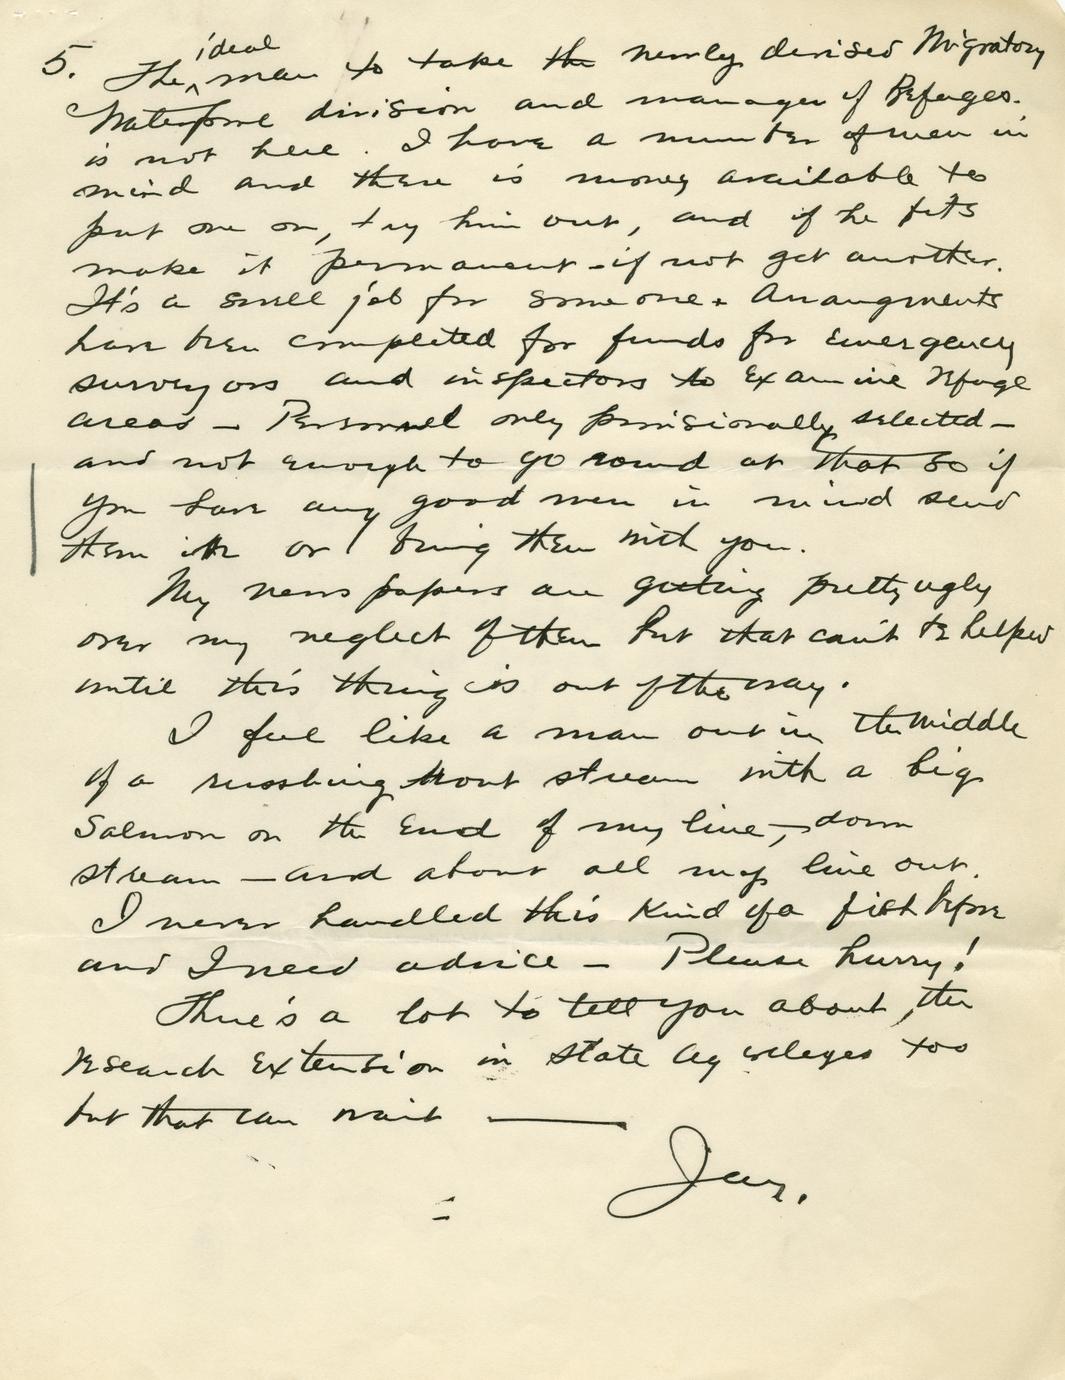 5. The ideal man to take the newly devised Migratory
Waterfowl division and manager of Refuges.
is not here. I have a number of men in
mind and there is money available to
put one on, try him out, and if he fits
make it permanent - if not get another.
It's a swell job for some one. Arrangments
have been completed for funds for emergency
surveyors and inspectors to examine refuge
areas — Personnel only provisionally selected —
and not enough to go round at that so if
you have any good men in mind send
them in or bring them with you.
My news papers are getting pretty ugly
over my neglect of them but that can't be helped
until this thing is out of the way.
I feel like a man out in the middle
of a russhing trout stream with a big
Salmon on the end of my line, — down
stream — and about all my line out.
I never handled this kind of a fish before
and I need advice — Please hurry!
There's a lot to tell you about the
research extension in state ag colleges too
but that can wait ———
Jay.